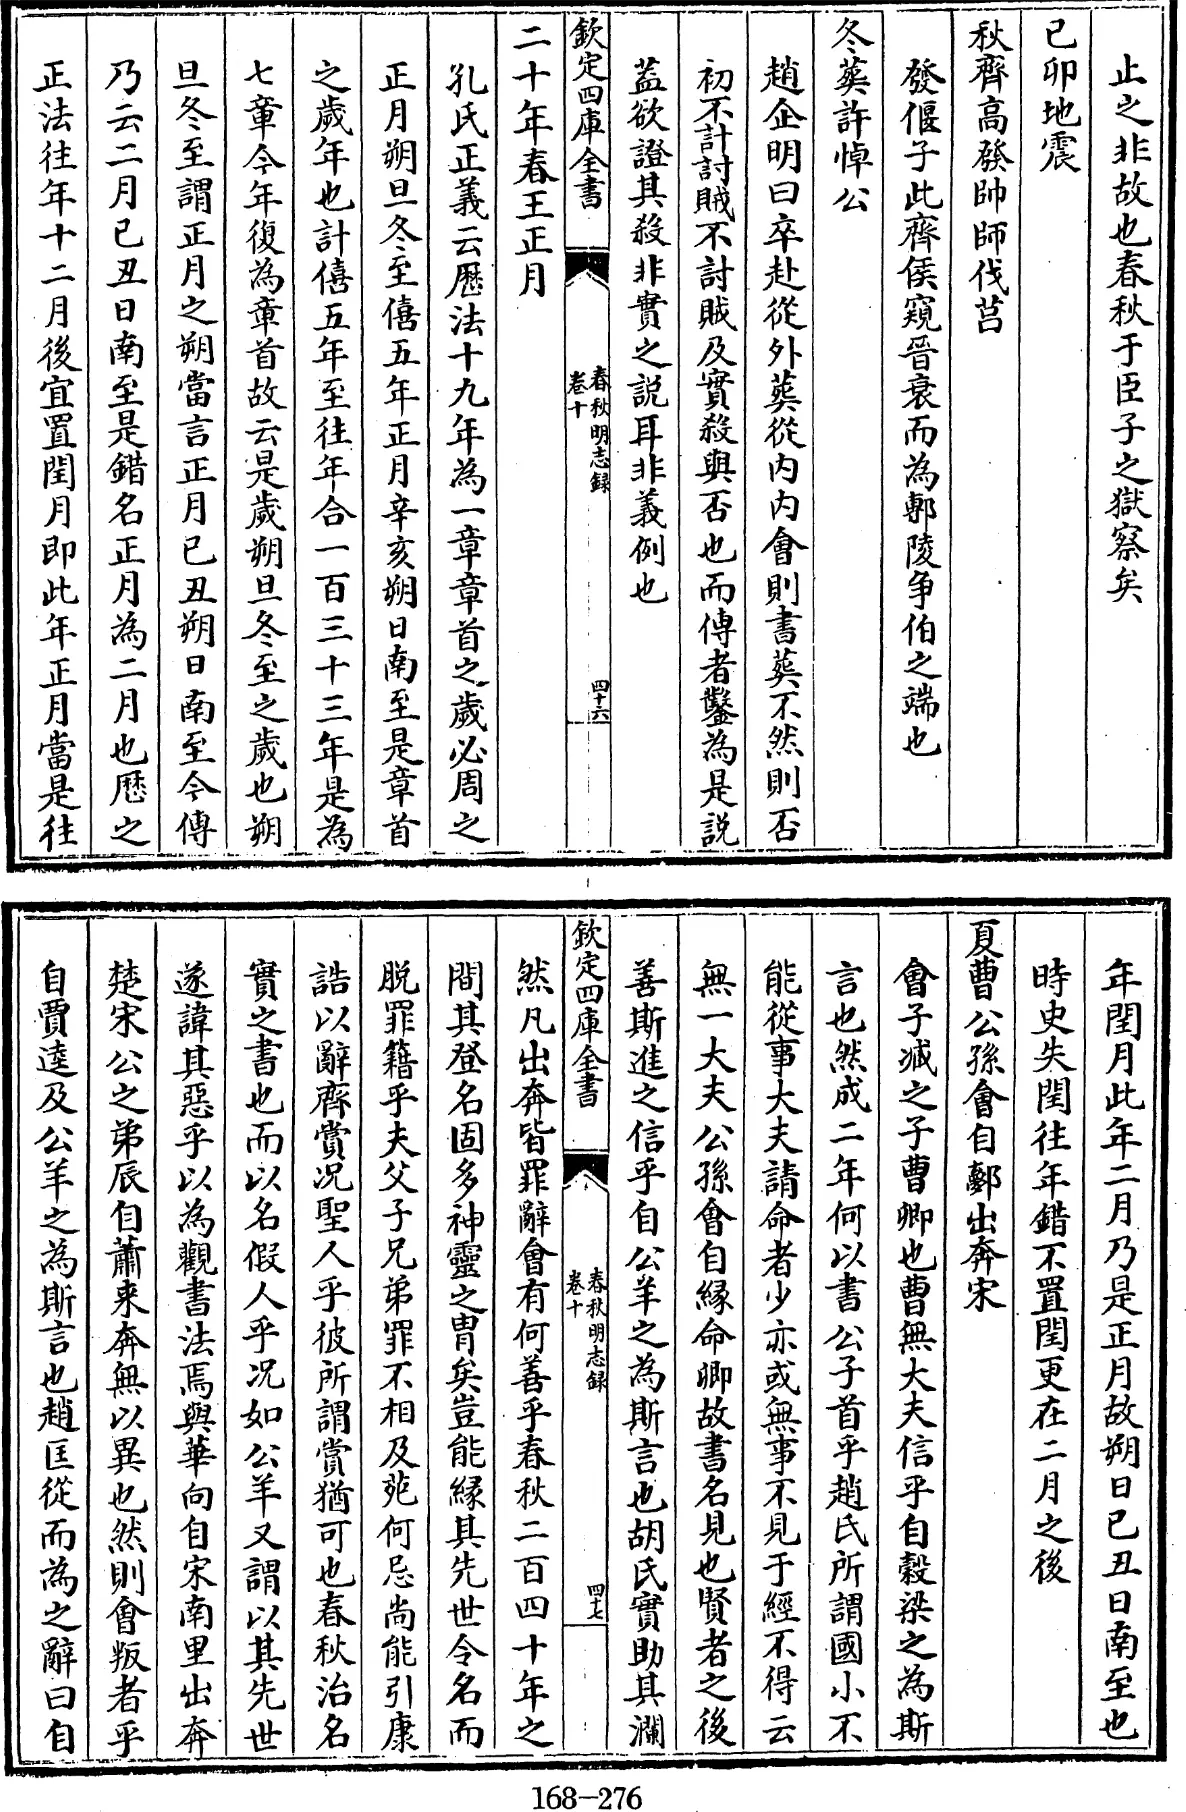 止之非故也春秋于臣子之獄察矣
己卯地震
秋齊高發帥師伐莒
發偃子此齊侯窺晉衰而為鄟陵爭伯之端也
冬葬許悼公
趙企明曰卒赴從外葬從内内會則書葬不然則否
初不計討賊不討賊及實殺與否也而傳者鑿為是說
葢欲證其殺非實之説耳非義例也
欽定四庫全書
春秋明志録
卷十
四十六
二十年春王正月
孔氏正義云厯法十九年為一章章首之歲必周之
正月朔旦冬至僖五年正月辛亥朔日南至是章首
之歲年也計僖五年至往年合一百三十三年是為
七章今年復為章首故云是歲朔旦冬至之歲也朔
旦冬至謂正月之朔當言正月己丑朔日南至今傳
乃云二月己丑日南至是錯名正月為二月也厯之
正法往年十二月後宜置閏月即此年正月當是往
年閏月此年二月乃是正月故朔日己丑日南至也
時史失閏往年錯不置閏更在二月之後
夏曹公孫會自鄸出奔宋
會子臧之子曹卿也曹無大夫信乎自榖梁之為斯
言也然成二年何以書公子首乎趙氏所謂國小不
能從事大夫請命者少亦或無事不見于經不得云
無一大夫公孫會自縁命卿故書名見也賢者之後
善斯進之信乎自公羊之為斯言也胡氏實助其瀾
欽定四庫全書
春秋明志録
卷十
四十七
然凡出奔皆罪辭會有何善乎春秋二百四十年之
間其登名固多神靈之胄矣豈能縁其先世令名而
脱罪籍乎夫父子兄弟罪不相及苑何忌尚能引康
誥以辭齊賞况聖人乎彼所謂賞猶可也春秋治名
實之書也而以名假人乎况如公羊又謂以其先世
遂諱其惡乎以為觀書法焉與華向自宋南里出奔
楚宋公之弟辰自蕭来奔無以異也然則會叛者乎
自賈逵及公羊之為斯言也趙匡從而為之辭曰自
168-276